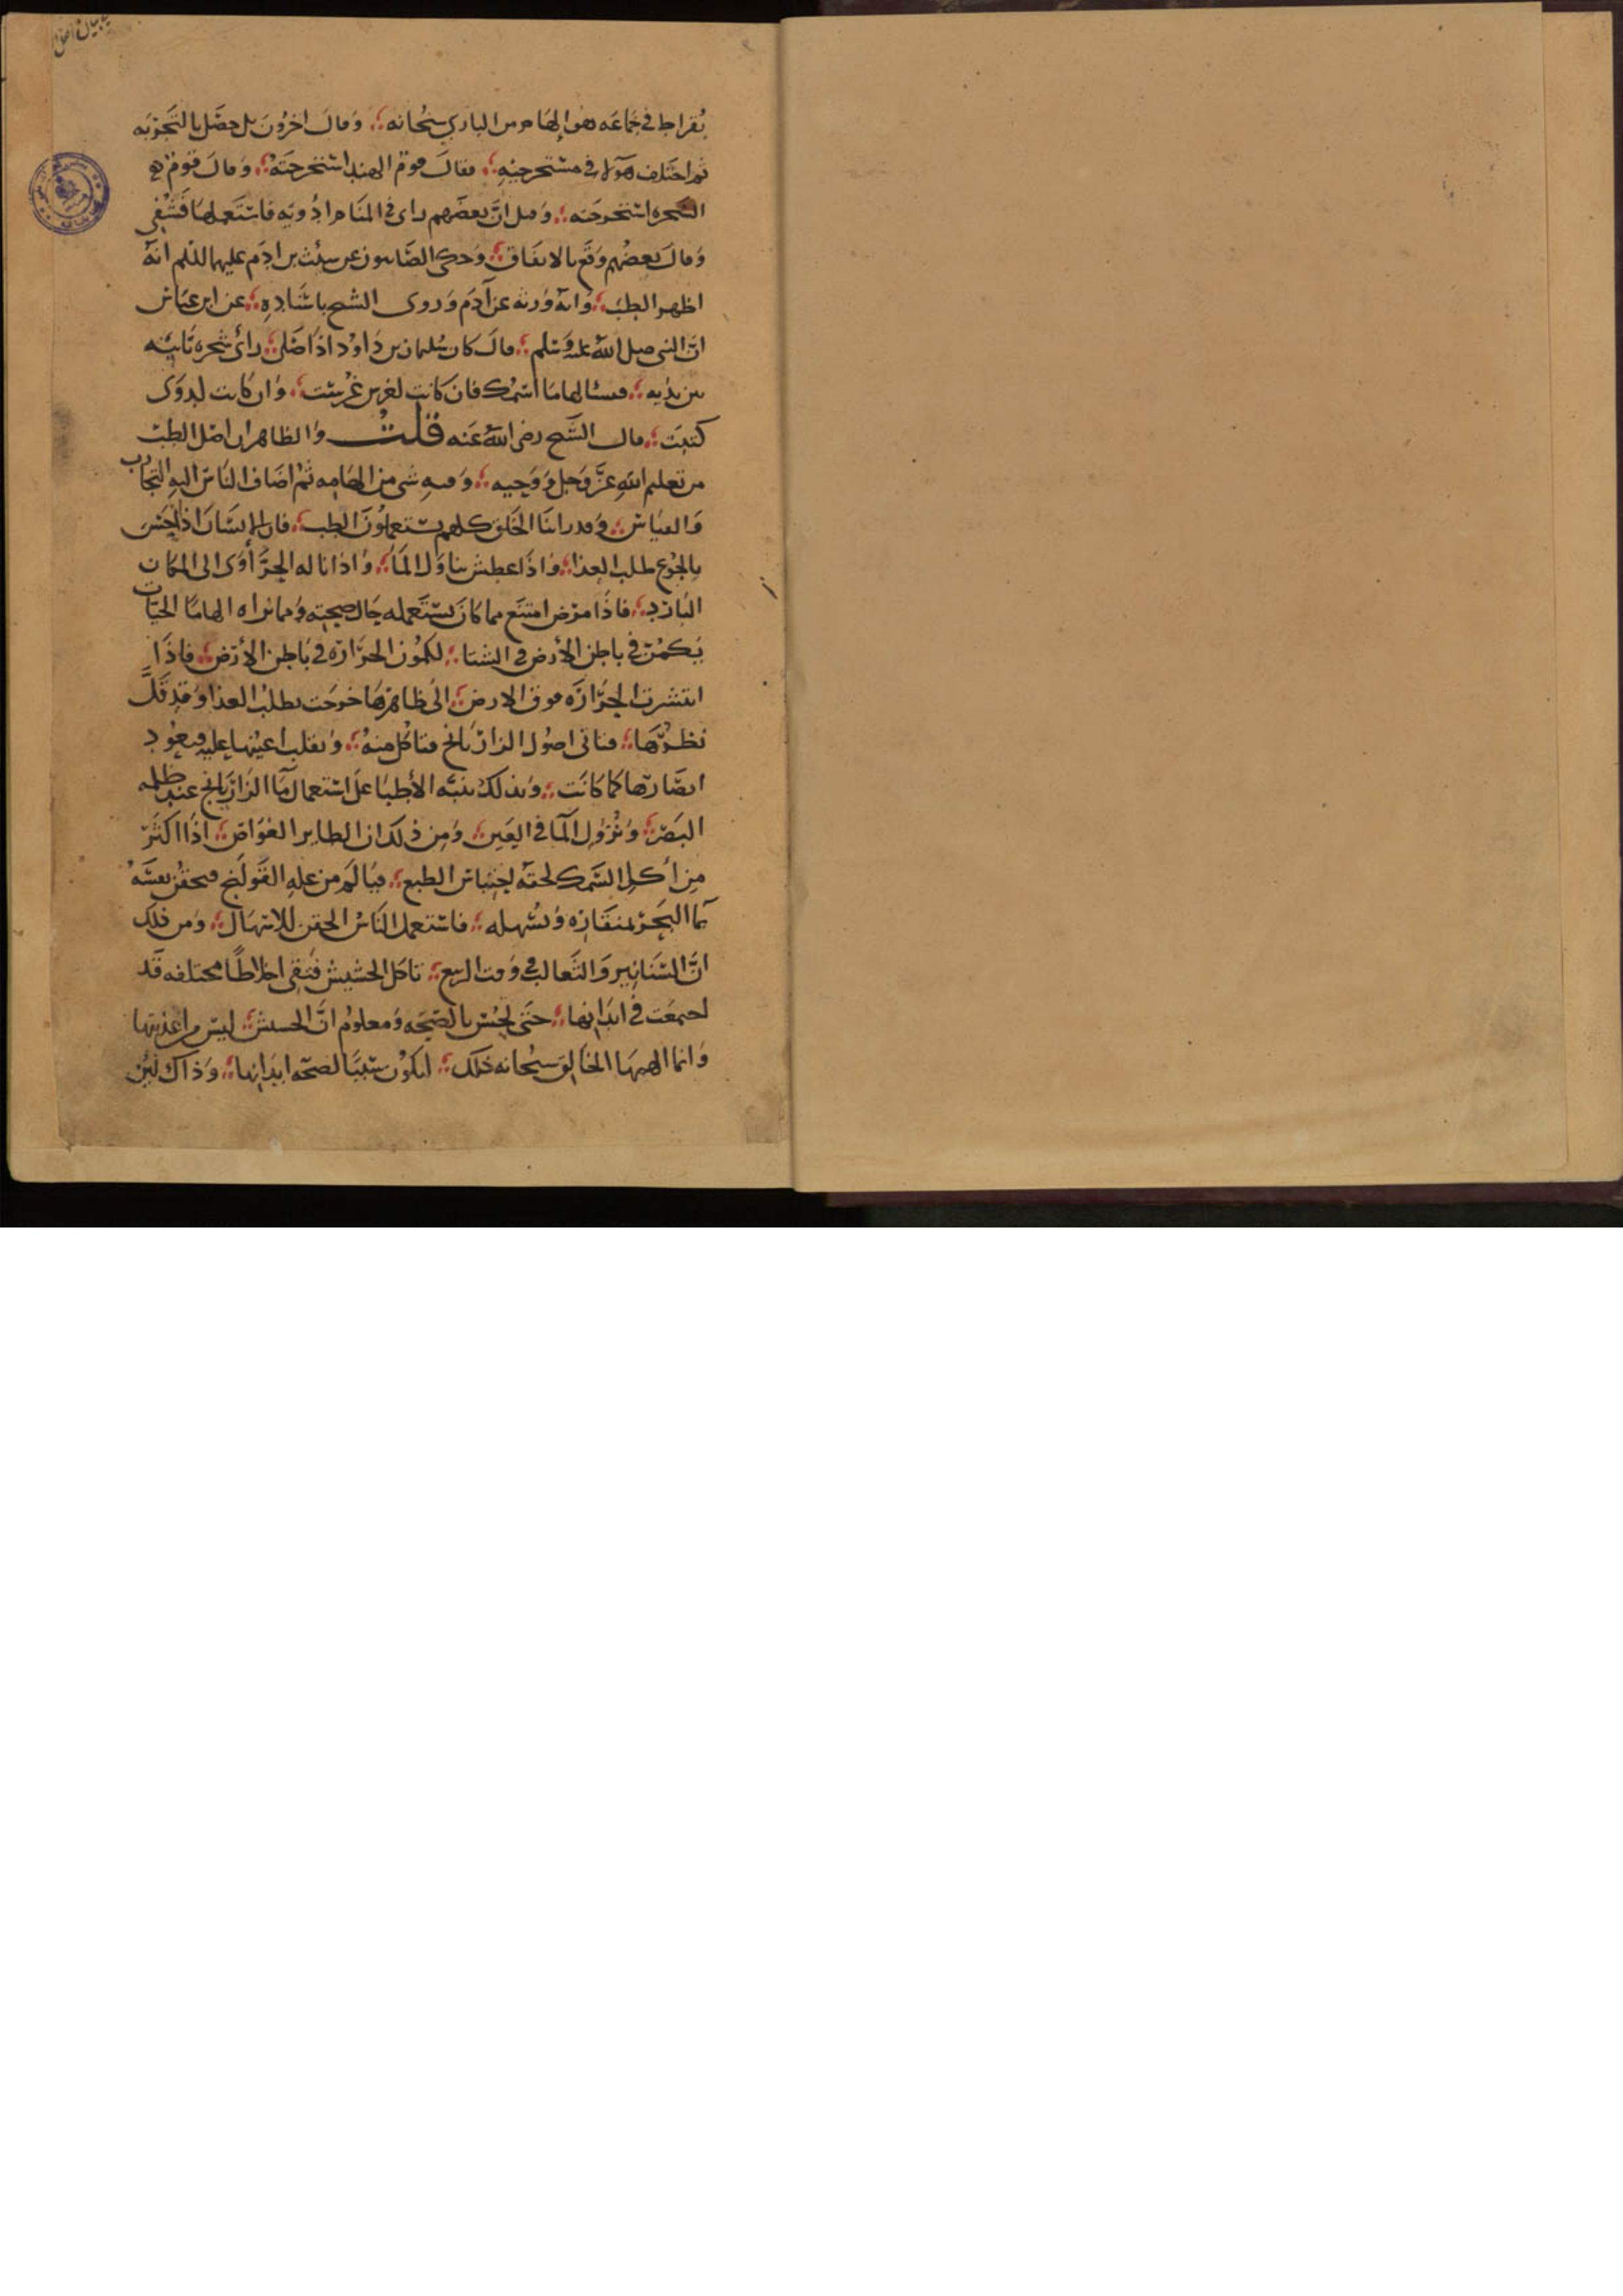 بقراط في جماعه هو الهام من الباري سبحانه؛ وقال اخرون بل حصل بالتجربه
ثم اختلف هؤلاء في مستخرجيه؛ فقال قوم الهند استخرجته؛ وقال قوم
السحره استخرجته؛ وقيل ان بعضهم راى في المنام ادويه فاستعملها فشفي
وقال بعضهم وقع بالاتفاق؛ وحكى الصابيون عن شيث بن ادم عليهما السلم انه
اظهر الطب؛ وانه ورثه عن آدم وروى الشيخ باسناده؛ عن ابن عباس
ان النبي صلى الله عليه وسلم؛ قال كان سليمان بن داود اذا صلى؛ رأى شجره نابته
بين يديه؛ فيسئالها ما اسمك فان كانت لغرس غرست؛ وان كانت لدوى
كتبت؛ قال الشيخ رضي الله عنه قلت والظاهر ان اصل الطب
من تعليم الله عز وجل ووحيه؛ وفيه شي من الهامه ثم اضاف الناس اليه التجارب
والقياس؛ وقد راينا الخلق كلهم يستعملون الطب؛ فان الانسان اذا احس
بالجوع طلب الغذا؛ واذا عطش تناول الماء؛ واذا ناله الحر أوى الى المكان
البارد؛ فاذا مرض امتنع مما كان يستعمله حال صحته ومما نراه الهاما الحيات
يكمن في باطن الأرض في الشتا؛ لكمون الحرارة في باطن الأرض؛ فاذا
انتشرت الحرارة فوق الارض؛ الى ظاهرها خرجت بطلب الغذا وقد قل
نظرها؛ فتاتي اصول الرازيانج فتاكل منه؛ وتقلب اعينها عليه فيعود
ابصارها كما كانت؛ وبذلك تنبه الأطبا على استعمال ما الرازيانج عند ظلمه
البصر؛ ونزول الما في العين؛ ومن ذلك ان الطاير الغواص؛ اذا اكثر
من أكل السمك لحقه احتباس الطبع؛ فيالم من عله القولنج فيحقن نفسه
بما البحر بمنقاره وتسهله؛ فاستعمل الناس الحقن للاسهال؛ ومن ذلك
ان السنانير والثعالب في وقت الربيع؛ تاكل الحشيش فتقي اخلاطا مختلفه قد
اجتمعت في ابدانها؛ حتى تحس بالصحه ومعلوم ان الحشيش؛ ليس من اغذيتها
وانما الهمها الخالق سبحانه ذلك؛ ليكون سببا لصحه ابدانها؛ وذاك